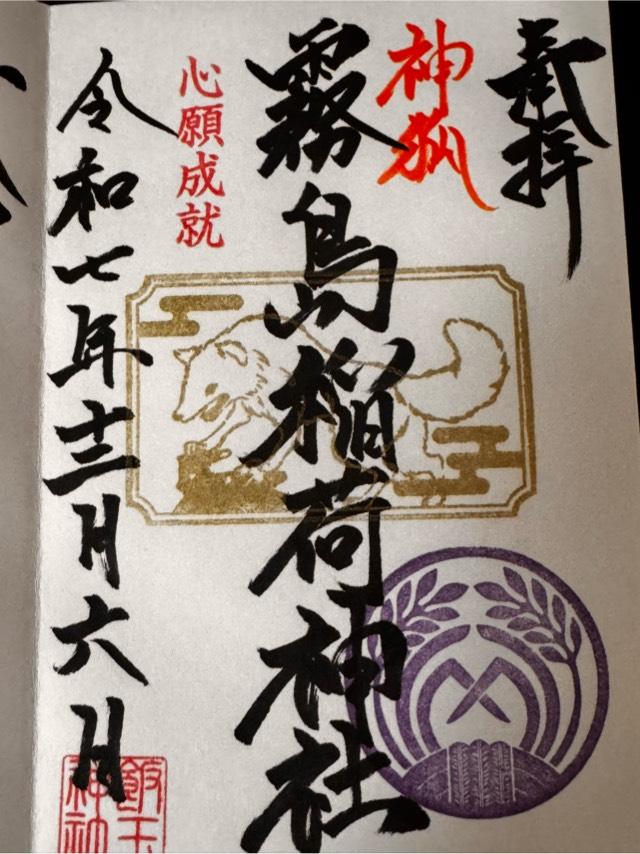 奉拝
神狐
霧島稲荷神社
心願成就
令和七年十二月六日
飯玉
神社